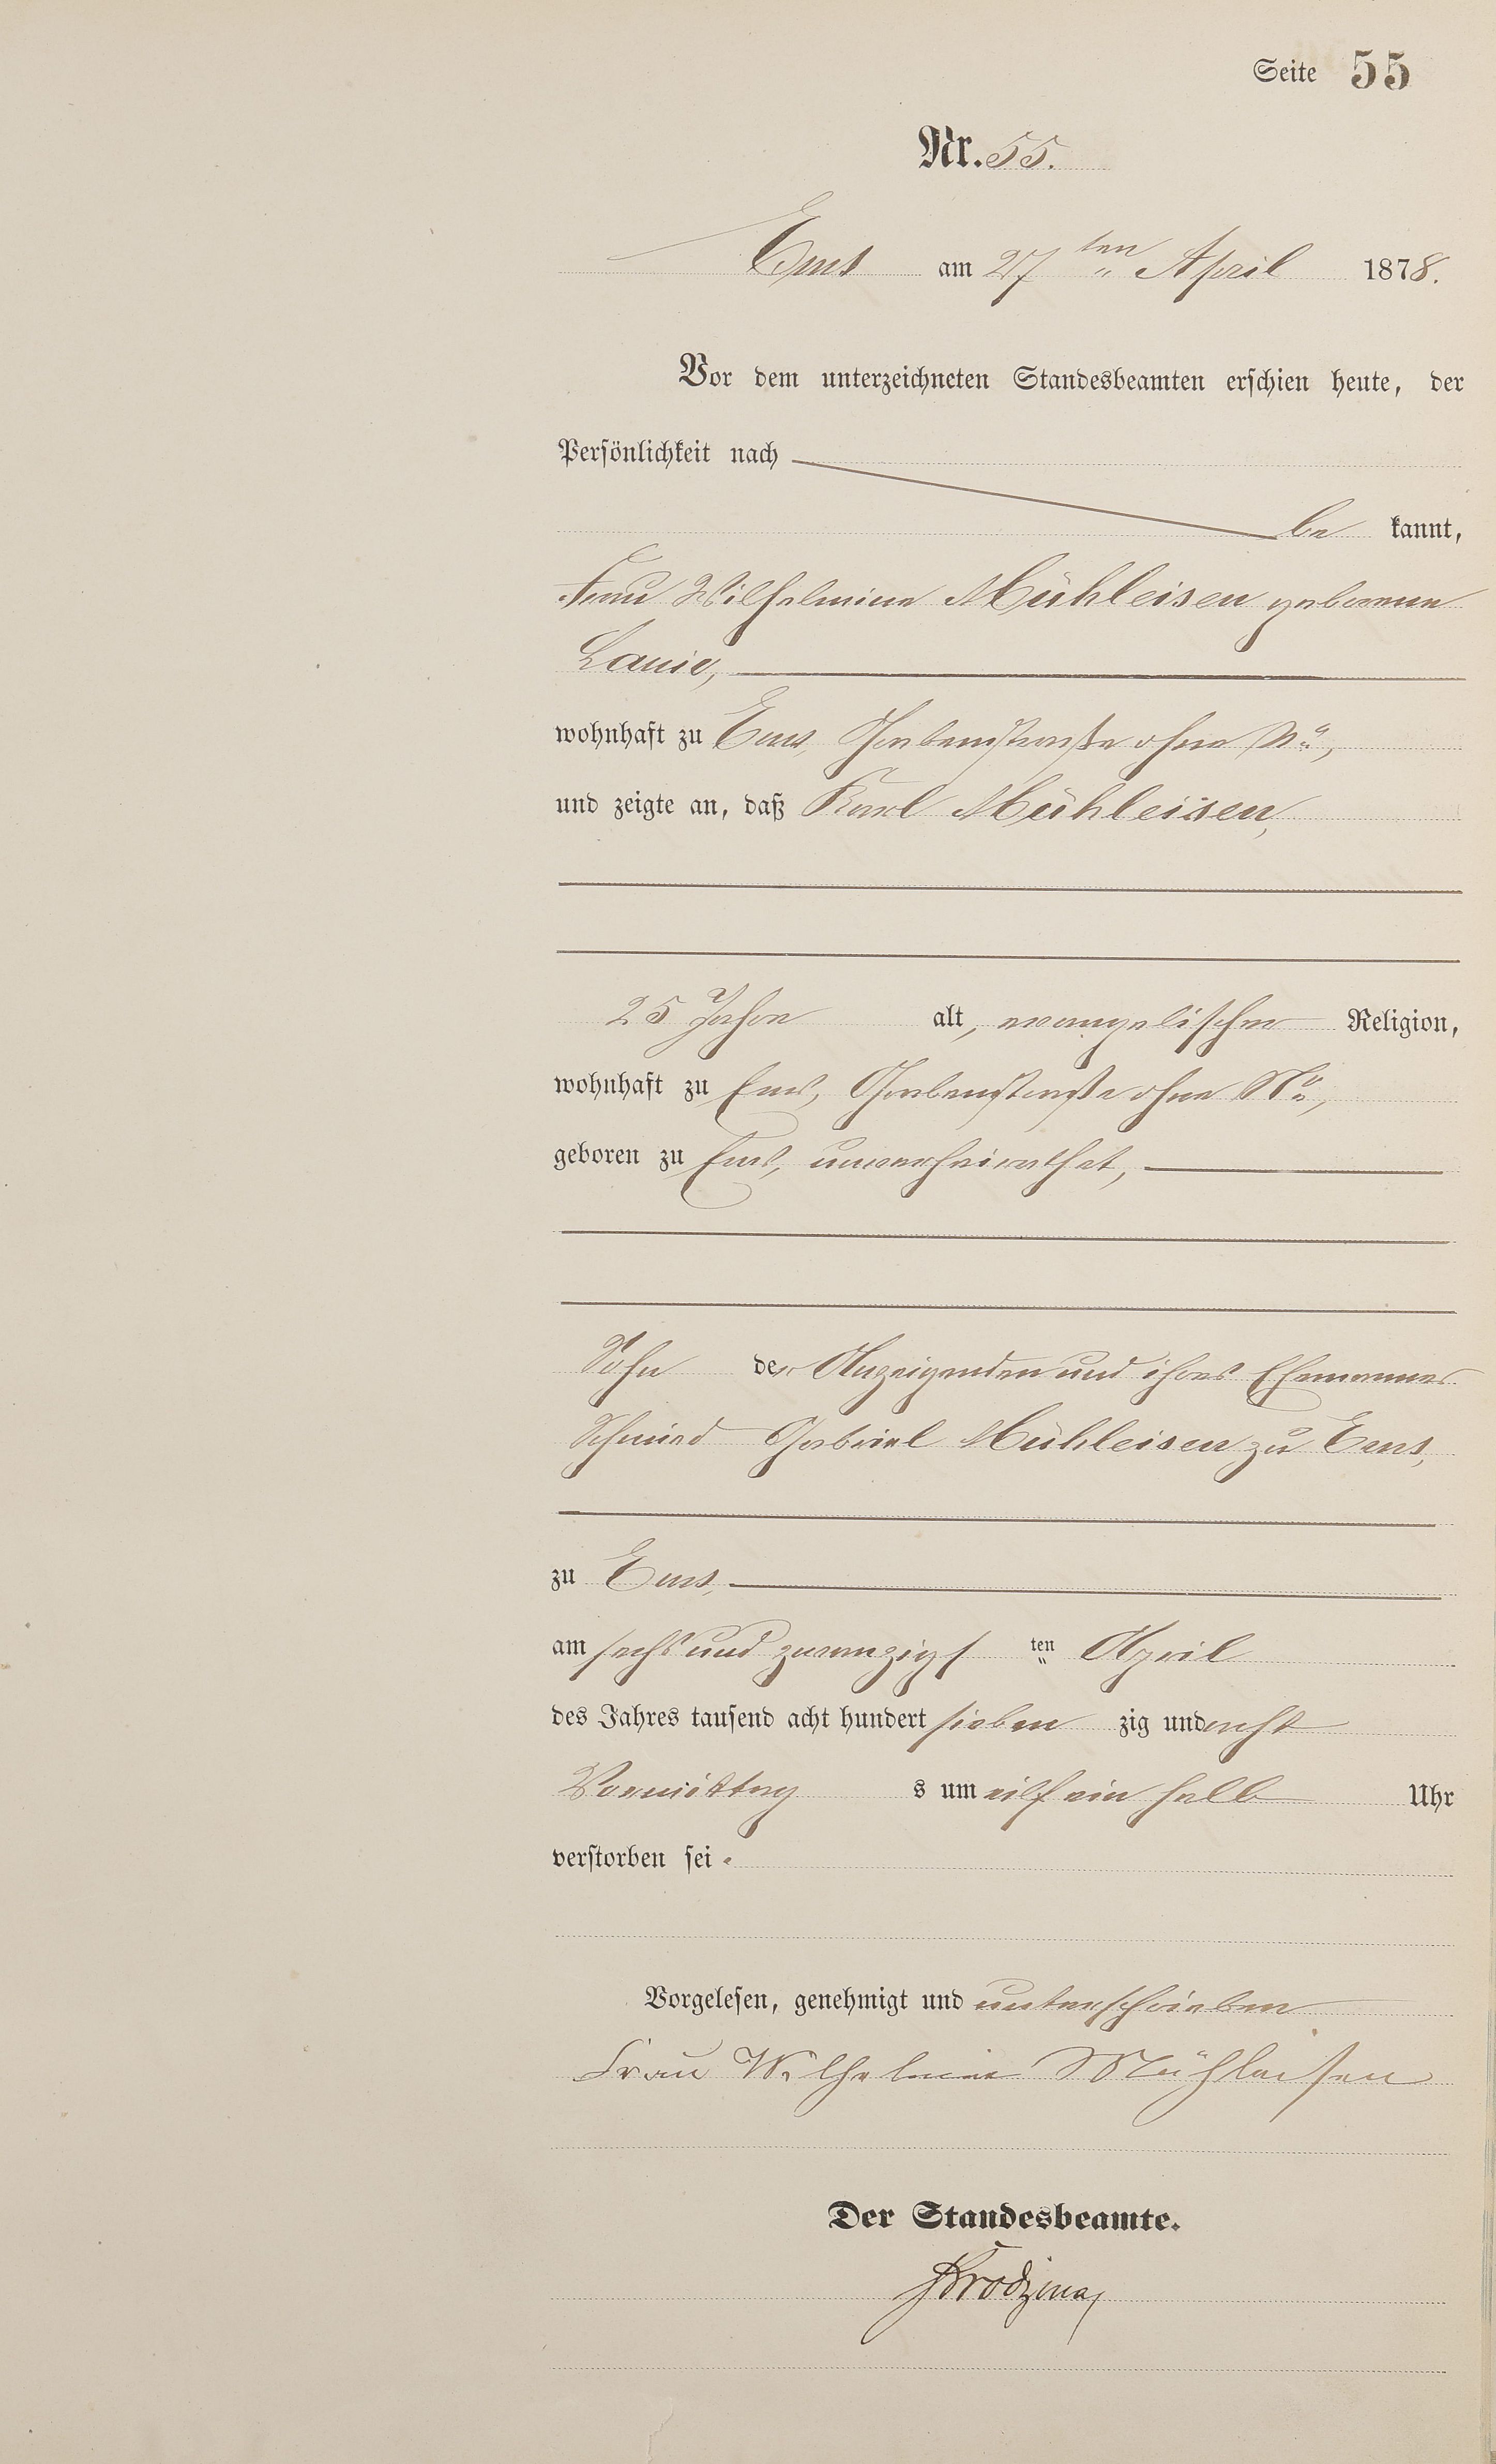 Seite 55
Nr. 55.
Ems am 27ten April 1878.
Vor dem unterzeichneten Standesbeamten erschien heute, der
Persönlichkeit nach
be kannt,
Frau Wilhelmine Mühleisen geborene
wohnhaft zu Ems, Grabenstraße ohne No,
und zeigte an, daß Karl Mühleisen,
25 Jahre alt, evangelischer Religion,
wohnhaft zu Ems, Grabenstraße ohne No,
geboren zu Ems, unverheirathet,
Sohn der Anzeigenden und ihres Ehemannes
Schmied Gabriel Mühleisen zu Ems,
zu Ems,
am sechs und zwanzigsten April
des Jahres tausend acht hundert sieben zig und acht
Vormittags um eilf ein halb Uhr
verstorben sei.
Vorgelesen, genehmigt und unterschrieben
Frau Wilhelmine Mühleisen
Der Standesbeamte.